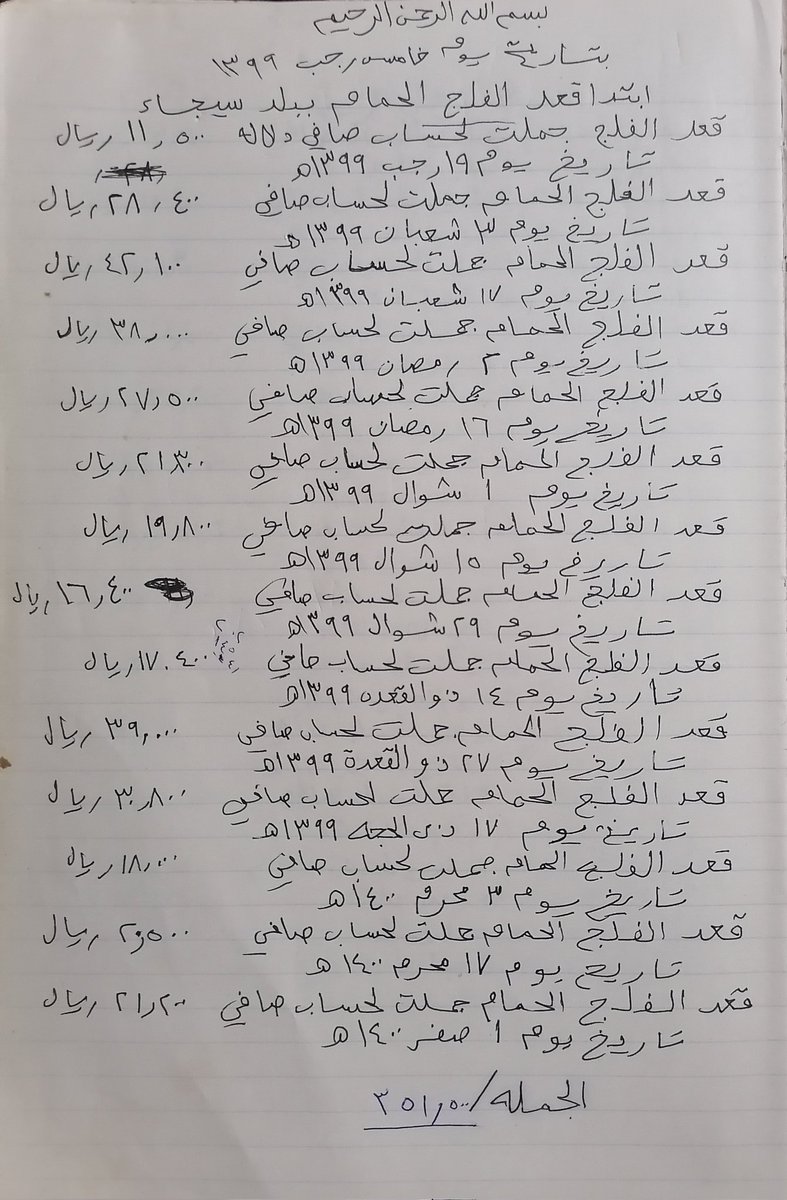 بسم الله الرحمن الرحيم
بتساريخ يوم خامس رجب ١٣٩٩
ابتدا قعد الفلج الحمام ببلد سيجاء
قعد الفلج جملت لحساب صافي دلاله ١١٫٥٠٠ ريال
تاريخ يوم ١٩ رجب ١٣٩٩ه
قعد الفلج الحمام جملت لحساب صافي ٢٨٫٤٠٠ ريال
تاريخ يوم ٣ شعبان ١٣٩٩ه
قعد الفلج الحمام جملت لحساب صافي ٤٢٫١٠٠ ريال
تاريخ يوم ١٧ شعبان ١٣٩٩ه
قعد الفلج الحمام جملت لحساب صافي ٣٨٫٠٠٠ ريال
تاريخ يوم ٢ رمضان ١٣٩٩ه
قعد الفلج الحمام جملت لحساب صافي ٢٧٫٥٠٠ ريال
تاريخ يوم ١٦ رمضان ١٣٩٩ه
قعد الفلج الحمام جملت لحساب صافي ٢١٫٣٠٠ ريال
تاريخ يوم ١ شوال ١٣٩٩ه
قعد الفلج الحمام جملت لحساب صافي ١٩٫٨٠٠ ريال
تاريخ يوم ١٥ شوال ١٣٩٩ه
قعد الفلج الحمام جملت لحساب صافي ١٦٫٤٠٠ ريال
تاريخ يوم ٢٩ شوال ١٣٩٩ه
قعد الفلج الحمام جملت لحساب صافي ١٧٫٤٠٠ ريال
تاريخ يوم ١٤ ذو القعده ١٣٩٩ه
قعد الفلج الحمام جملت لحساب صافي ٣٩٫٠٠٠ ريال
تاريخ يوم ٢٧ ذو القعدة ١٣٩٩ه
قعد الفلج الحمام جملت لحساب صافي ٣٠٫٨٠٠ ريال
تاريخ يوم ١٧ ذى الحجه ١٣٩٩ه
قعد الفلج الحمام جملت لحساب صافي ١٨٫٠٠٠ ريال
تاريخ يوم ٣ محرم ١٤٠٠ه
قعد الفلج الحمام جملت لحساب صافي ٢٠٫٥٠٠ ريال
تاريخ يوم ١٧ محرم ١٤٠٠ه
قعد الفلج الحمام جملت لحساب صافي ٢١٫٢٠٠ ريال
تاريخ يوم ١ صفر ١٤٠٠ه
الجمله/ ٣٥١٫٥٠٠